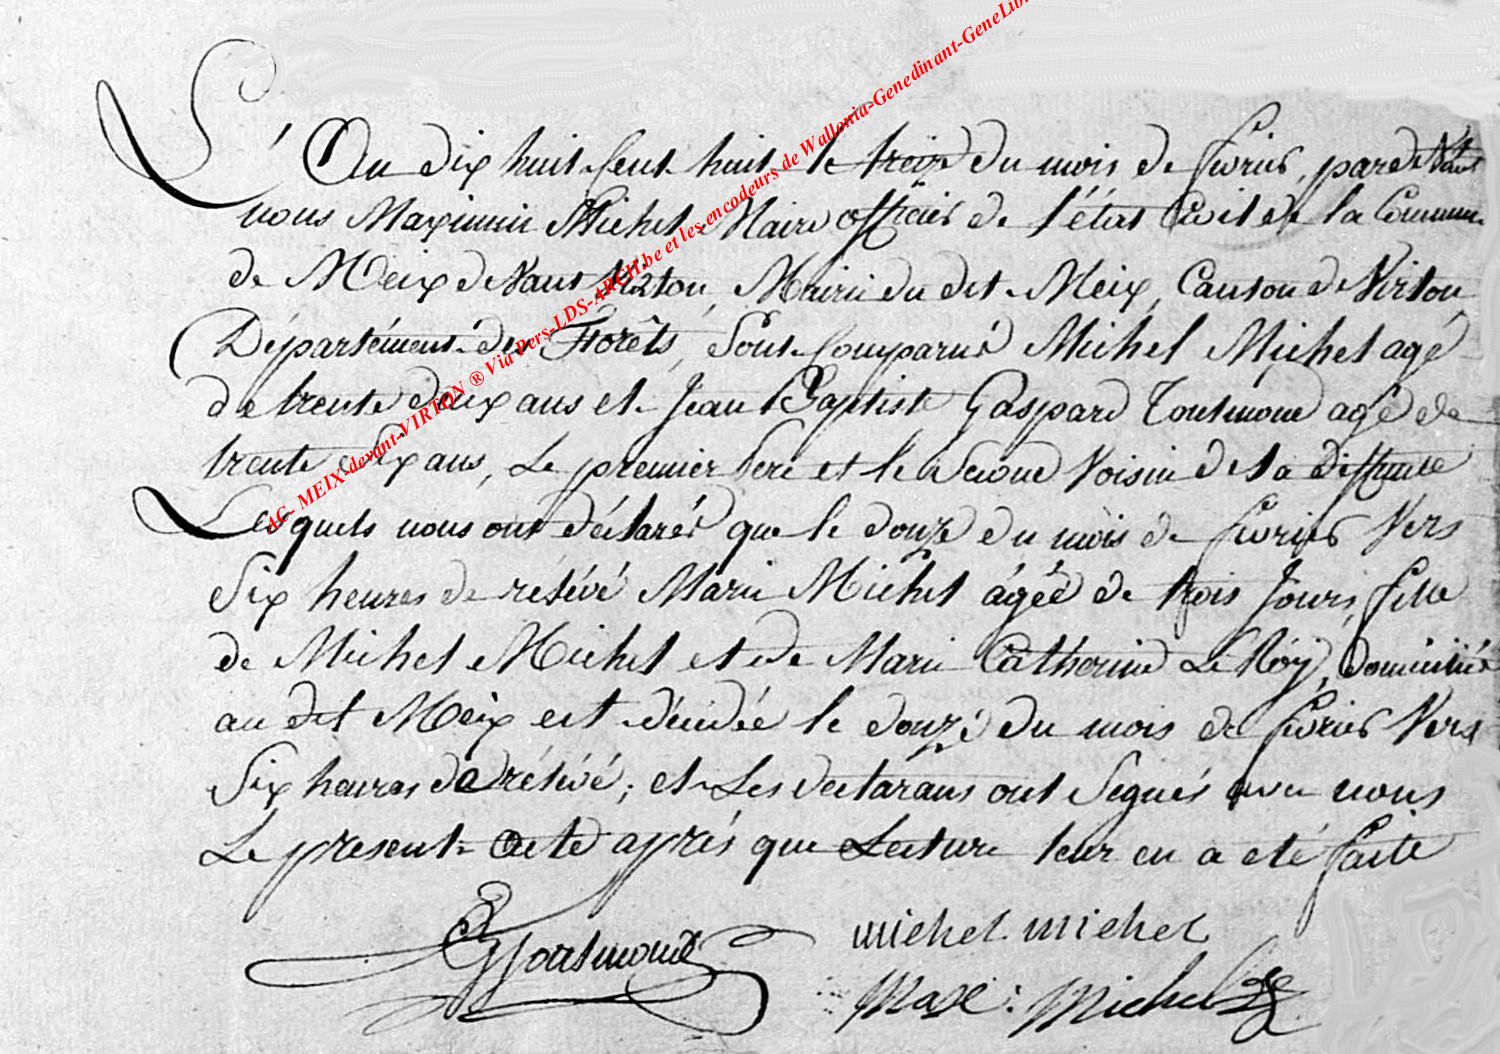 AC- MEIX-devant-VIRTON ® Via Pers-LDS-ARCH.be et les encodeurs de Wallonia-Genedinant-GeneLib
L'An dix huit Cent huit le treize du mois de fevrier, pardevant
nous Maximin Michel Maire officier de l'état Civil de la Commune
de Meix devant Virton, Mairie du dit Meix, Canton de Virton
Département des Forêts, Sont Comparus Michel Michel agé
de trente deux ans et Jean Baptiste Gaspard Toutmond agé de
trente Six ans, Le premier Pere et le Second Voisin de la Diffunte
Lesquels nous ont déclarés que le douze du mois de fevrier Vers
Six heures de rélévé Marie Michel ágée de trois Jours, fille
de Michel Michel et de Marie Catherine Le Roy, domiciliés
au dit Meix est décédée le douze du mois de fevrier Vers
Six heures de rélévé; et Les declarans ont Signés avec nous
Le present Acte aprés que Lecture leur en a eté faite
Michel Michel
Max: Michel